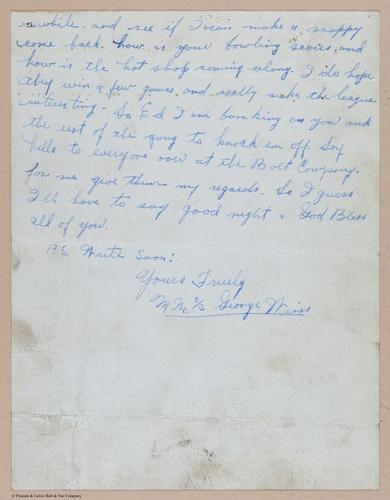 awhile. and see if I can make a snappy
come back. how is your bowling series, and
how is the hot shop coming along. I do hope
they win a few games. and really make the league
interesting. So Ed I am banking on you and
the rest of the gang to knock em off. Say
hello to everyone over at the Bolt Company.
for me give them my regards. So I guess
I'll have to say good night & God Bless
all of you.
P.S. Write Soon:
Yours Truely
George Weiss
© Pitcairn & Lewis Bolt & Nut Company